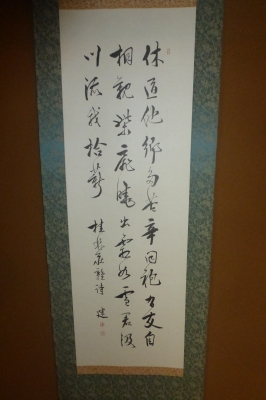 休道他郷多苦辛同袍有友自
相親柴扉暁出霜如雪君汲
川流我拾薪
桂林荘雑詠 建